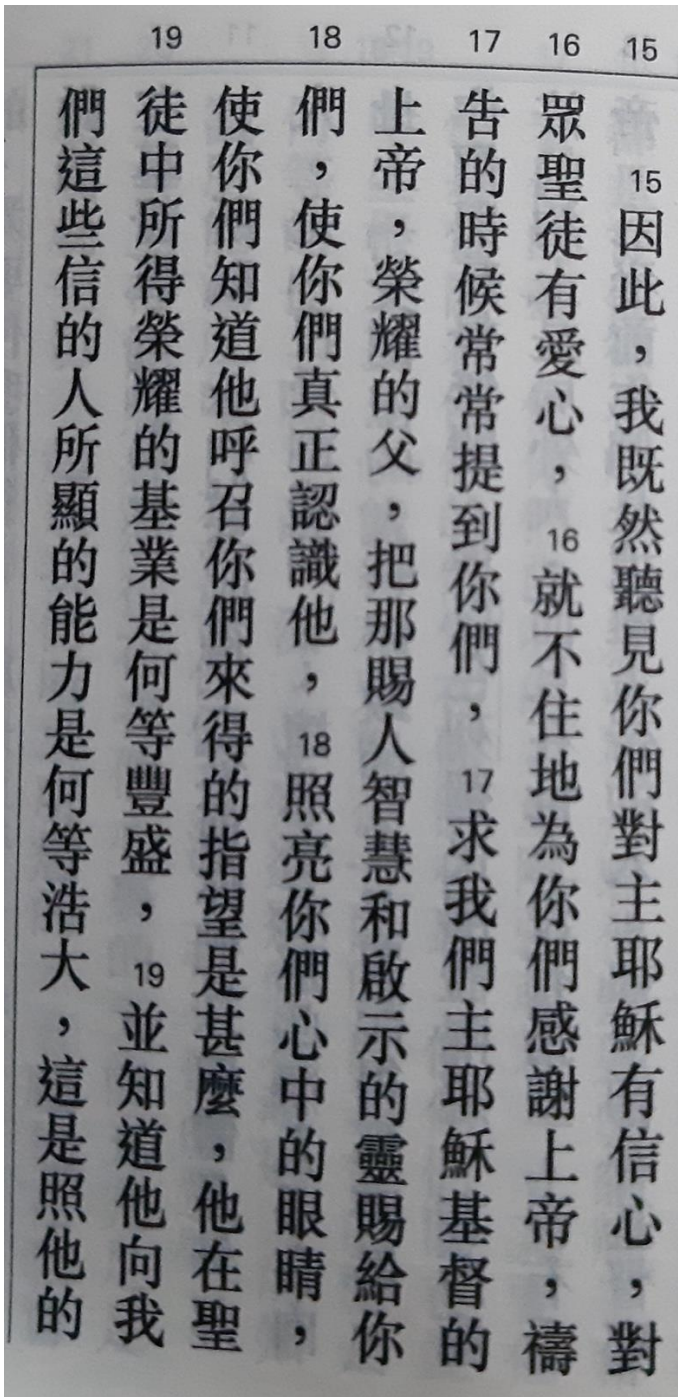 15 16 17 18 19
15因此，我既然聽見你們對主耶穌有信心，對
眾聖徒有愛心，16就不住地為你們感謝上帝，禱
告的時候常常提到你們，17求我們主耶穌基督的
上帝，榮耀的父，把那賜人智慧和啟示的靈賜給你
們，使你們真正認識他，18照亮你們心中的眼睛，
使你們知道他呼召你們來得的指望是甚麼，他在聖
徒中所得榮耀的基業是何等豐盛，19並知道他向我
們這些信的人所顯的能力是何等浩大，這是照他的